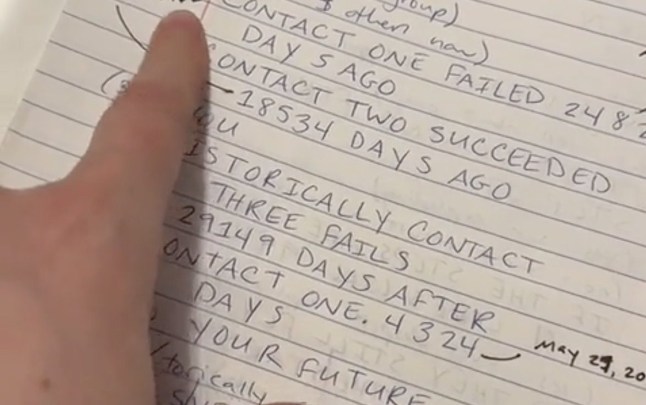 group)
& then now)
CONTACT ONE FAILED 2482
DAYS AGO
CONTACT TWO SUCCEEDED
18534 DAYS AGO
YOU
ISTORICALLY CONTACT
THREE FAILS
29149 DAYS AFTER
ONTACT ONE. 4324
DAYS May 29, 20
YOUR FUTURE
torically